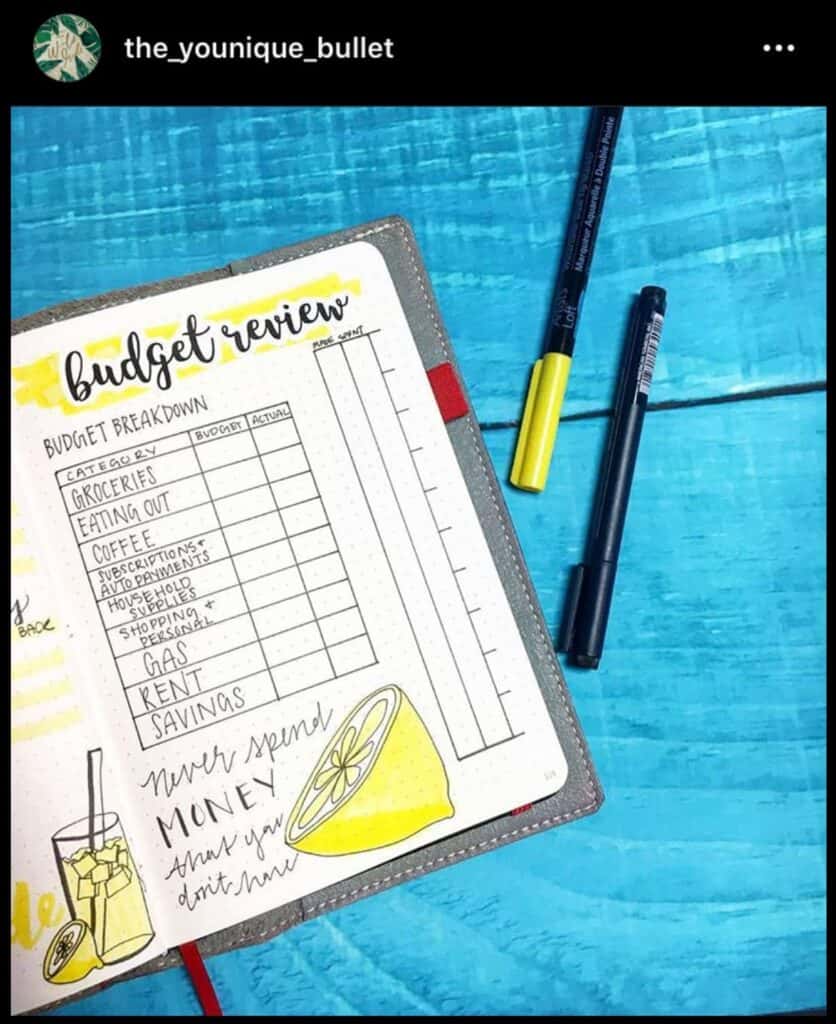 the_younique_bullet
Marqueur Aquarelle à Double Pointe
Loft
budget review
MADE SPENT
BUDGET BREAKDOWN
CATEGORY BUDGET ACTUAL
GROCERIES
EATING OUT
COFFEE
SUBSCRIPTIONS +
AUTO PAYMENTS
HOUSEHOLD
SUPPLIES
SHOPPING +
PERSONAL
GAS
RENT
SAVINGS
BACK
never spend
MONEY
that you
don't have